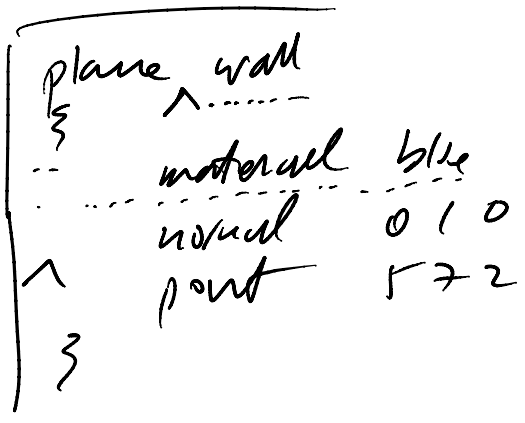 plane wall
{
material blue
normal 0 1 0
point 5 7 2
}